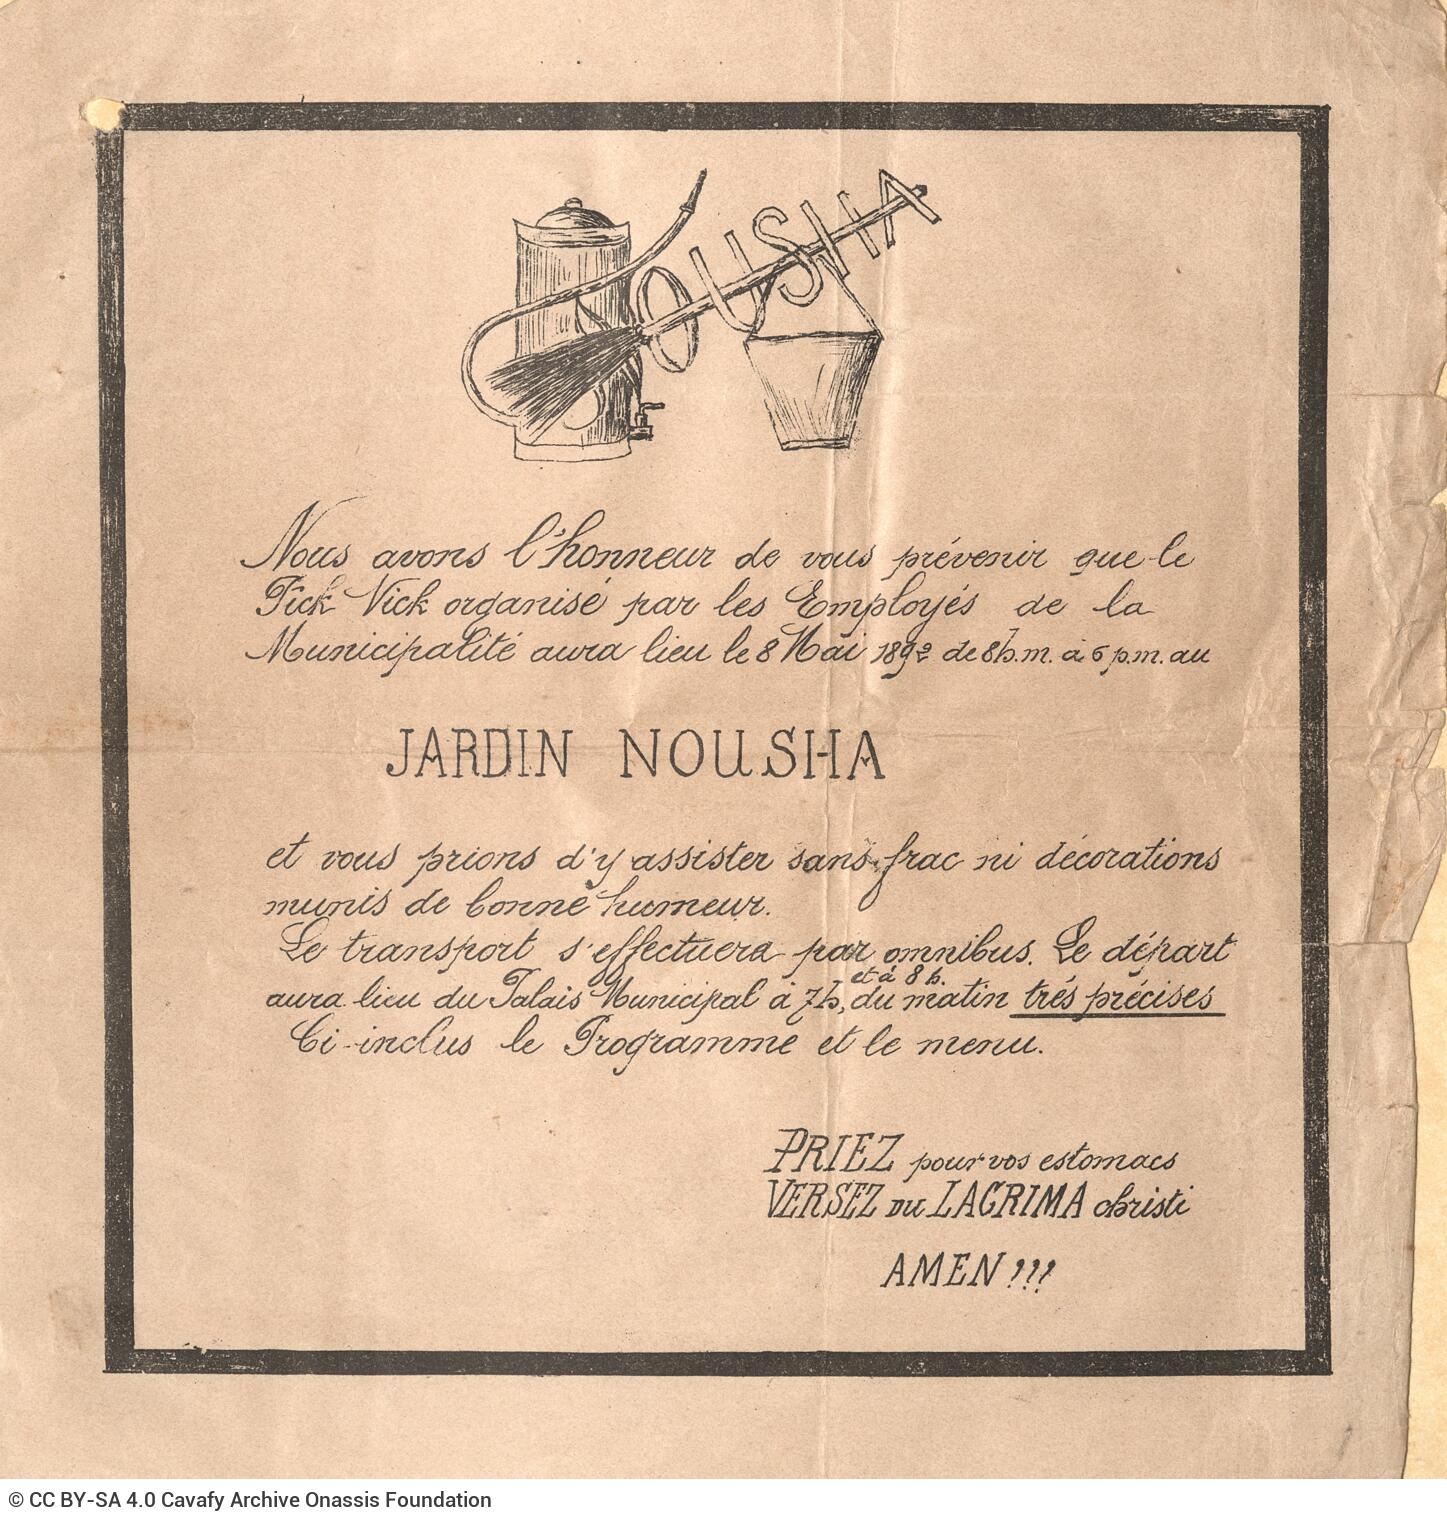 OUSHA
Nous avons l'honneur de vous prévenir que le
Pick Nick organisé par les Employés de la
Municipalité aura lieu le 8 Mai 1892 de 8h.m. à 6 p.m. au
JARDIN NOUSHA
et vous prions d'y assister sans frac ni décorations
munis de bonne humeur.
Le transport s'effectuera par omnibus. Le départ
et à 8 h.
aura lieu du Palais Municipal à 7h, du matin trés précises
Ci-inclus le Programme et le menu.
PRIEZ pour vos estomacs
VERSEZ DU LACRIMA christi
AMEN !!!
© CC BY-SA 4.0 Cavafy Archive Onassis Foundation